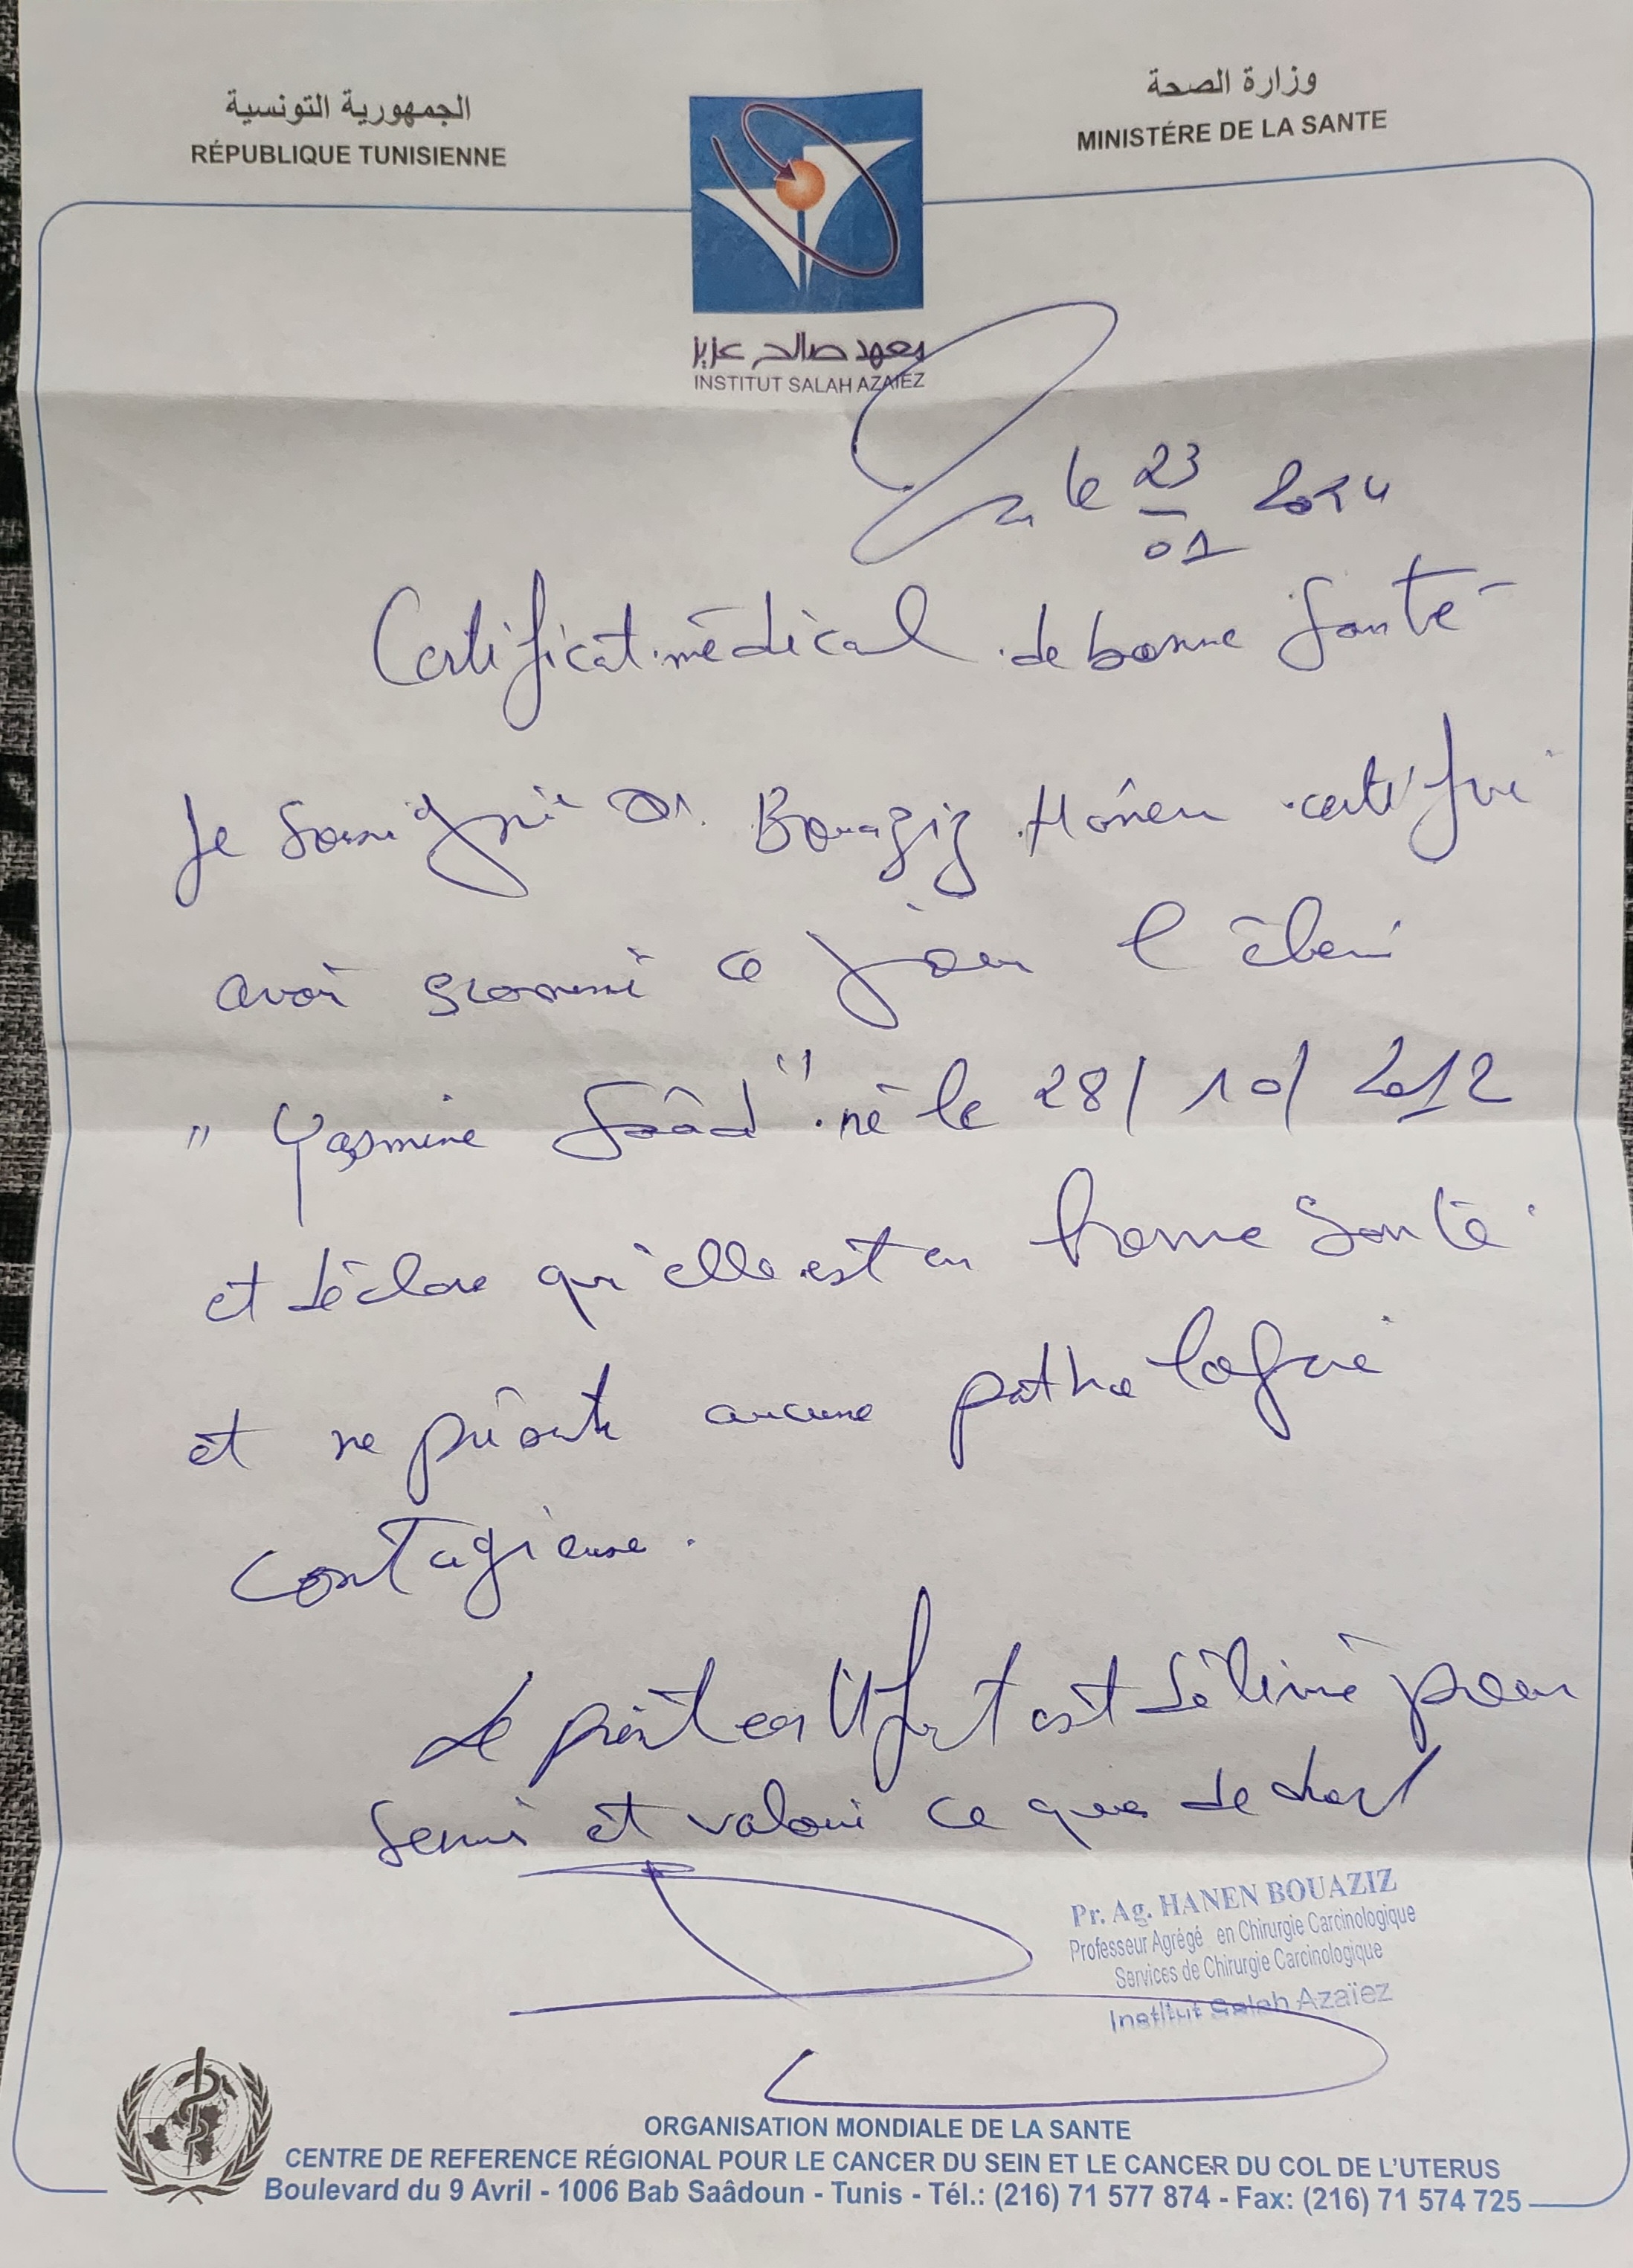 الجمهورية التونسية
RÉPUBLIQUE TUNISIENNE
وزارة الصحة
MINISTÉRE DE LA SANTE
معهد صالح عزيز
INSTITUT SALAH AZAIEZ
le 23 01 2024
Certificat médical de bonne Santé
Je soussigné Dr. Bouaziz Hanen certifie
avoir examiné ce jour l'élève
"Yasmine Saâd" né le 28/10/2012
et déclare qu'elle est en bonne Santé
et ne présente aucune pathologie
contagieuse.
Le présent certificat est délivré pour
servir et valoir ce que de droit
Pr. Ag. HANEN BOUAZIZ
Professeur Agrégé en Chirurgie Carcinologique
Services de Chirurgie Carcinologique
Institut Salah Azaïez
ORGANISATION MONDIALE DE LA SANTE
CENTRE DE REFERENCE RÉGIONAL POUR LE CANCER DU SEIN ET LE CANCER DU COL DE L'UTERUS
Boulevard du 9 Avril - 1006 Bab Saâdoun - Tunis - Tél.: (216) 71 577 874 - Fax: (216) 71 574 725